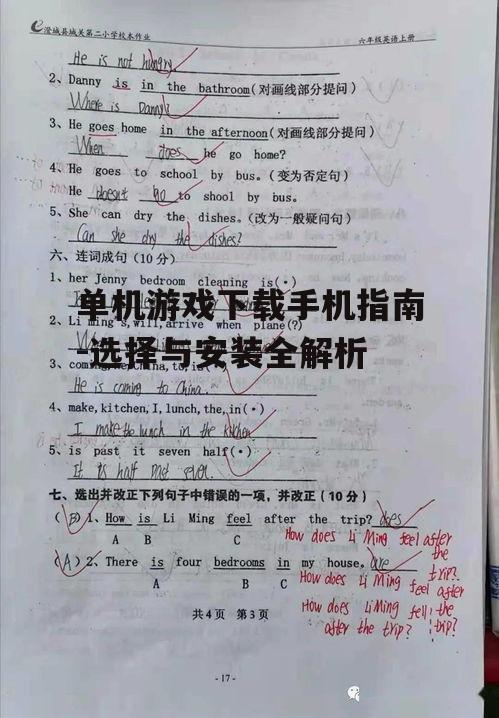 澄城县城关第二小学校本作业
六年级英语上册
He is not hungry
2、Danny is in the bathroom(对画线部分提问)
Where is Danny?
3、He goes home in the afternoon(对画线部分提问)
When does he go home?
4、He goes to school by bus.(变为否定句)
He doesn't go to shool by bus.
5、She can dry the dishes.(改为一般疑问句)
Can she dry the dishes?
六、连词成句(10分)
1、her Jenny bedroom cleaning is(·)
单机游戏下载手机指南
2、Li Ming's,will,arrive when plane(?)
-选择与安装全解析
He is coming to China.
4、make,kitchen,I,lunch,the,in(·)
I make the lunch in the kitchen
5、is past it seven half(·)
It is half past seven.
七、选出并改正下列句子中错误的一项，并改正(10分)
(B)1、How is Li Ming feel after the trip? does
A B C
How does Li Ming feel after the trip?
(A)2、There is four bedrooms in my house. are
A B C
How does Li Ming feel after the trip?
How does Li Ming fell after the trip?
共4页 第3页
-17-